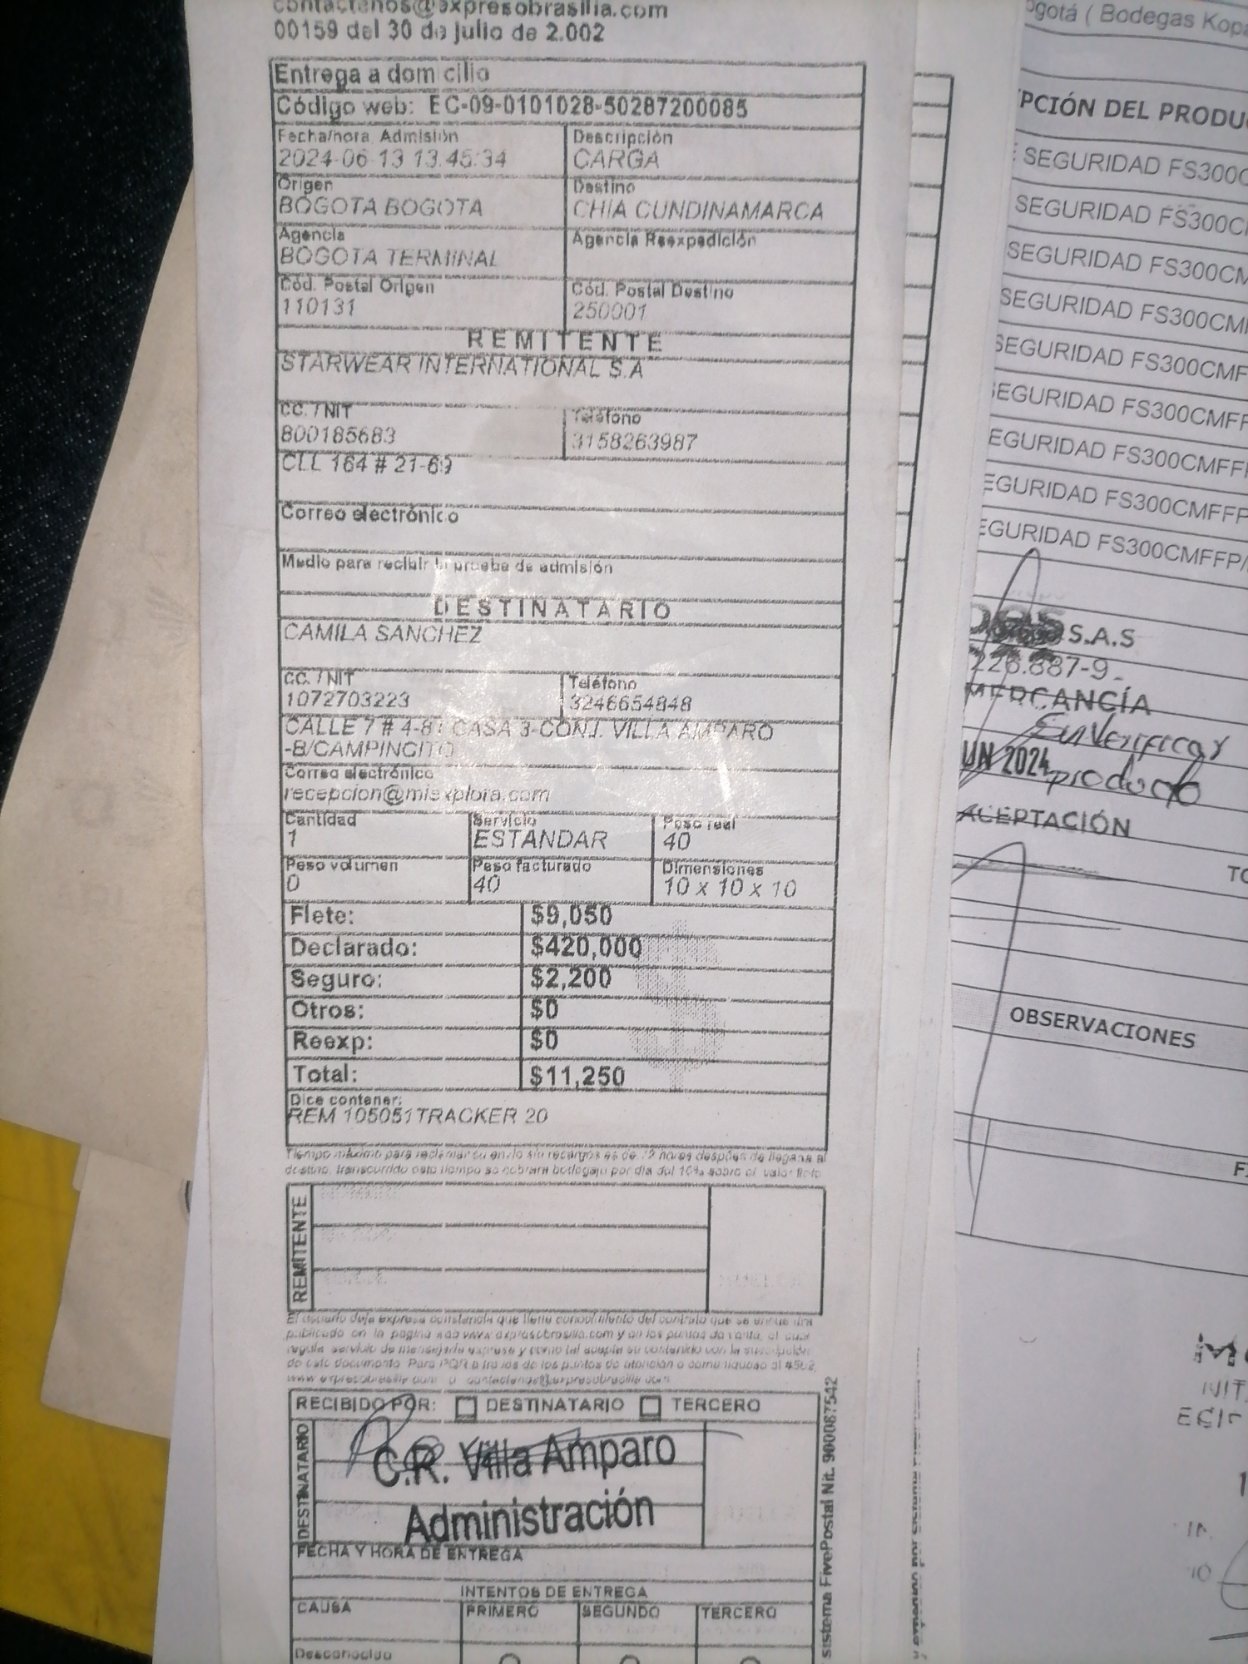 contactenos@expresobrasilia.com
00159 del 30 de julio de 2.002
Entrega a domicilio
Código web: EC-09-0101028-50287200085
Fecha/hora Admisión
Descripción
2024-06-13 13:45:34
CARGA
Origen
Destino
BOGOTA BOGOTA
CHIA CUNDINAMARCA
Agencia
Agencia Reexpedición
BOGOTA TERMINAL
Cód. Postal Origen
Cód. Postal Destino
110131
250001
REMITENTE
STARWEAR INTERNATIONAL S.A
CC. / NIT
Teléfono
800185683
3158263987
CLL 164 # 21-69
Correo electrónico
Medio para recibir la prueba de admisión
DESTINATARIO
CAMILA SANCHEZ
CC. / NIT
Teléfono
1072703223
3246654848
CALLE 7 # 4-81 CASA 3-CONJ. VILLA AMPARO
-B/CAMPINCITO
Correo electrónico
recepcion@misxplora.com
Cantidad
Servicio
Peso real
1
ESTANDAR
40
Peso volumen
Peso facturado
Dimensiones
0
40
10 x 10 x 10
Flete: $9,050
Declarado: $420,000
Seguro: $2,200
Otros: $0
Reexp: $0
Total: $11,250
Dice contener:
REM 105051TRACKER 20
Tiempo máximo para reclamar su envío sin recargos es de 72 horas después de llegada al
destino, transcurrido este tiempo se cobrara bodegaje por día del 10% sobre el valor flete
REMITENTE
El usuario deja expresa constancia que tiene conocimiento del contrato que se encuentra
publicado en la pagina web www.expresobrasilia.com y en los puntos de venta, el cual
regula servicio de mensajería expresa y como tal acepta su contenido con la suscripción
de este documento. Para PQR a traves de los puntos de atención o comuníquese al
www.expresobrasilia.com o contactenos@expresobrasilia.com
RECIBIDO POR: DESTINATARIO TERCERO
DESTINATARIO
C.R. Villa Amparo
Administración
FECHA Y HORA DE ENTREGA
INTENTOS DE ENTREGA
CAUSA PRIMERO SEGUNDO TERCERO
Desconocido
sistema FivePostal Nit. 900087542
ogotá ( Bodegas Kop
PCIÓN DEL PRODU
SEGURIDAD FS300C
SEGURIDAD FS300C
SEGURIDAD FS300CM
SEGURIDAD FS300CM
SEGURIDAD FS300CMF
SEGURIDAD FS300CMFF
EGURIDAD FS300CMFF
EGURIDAD FS300CMFFP
EGURIDAD FS300CMFFP/
S.A.S
226.887-9
MERCANCÍA
Sin Verificar
UN 2024
producto
ACEPTACIÓN
TO
OBSERVACIONES
F
NIT